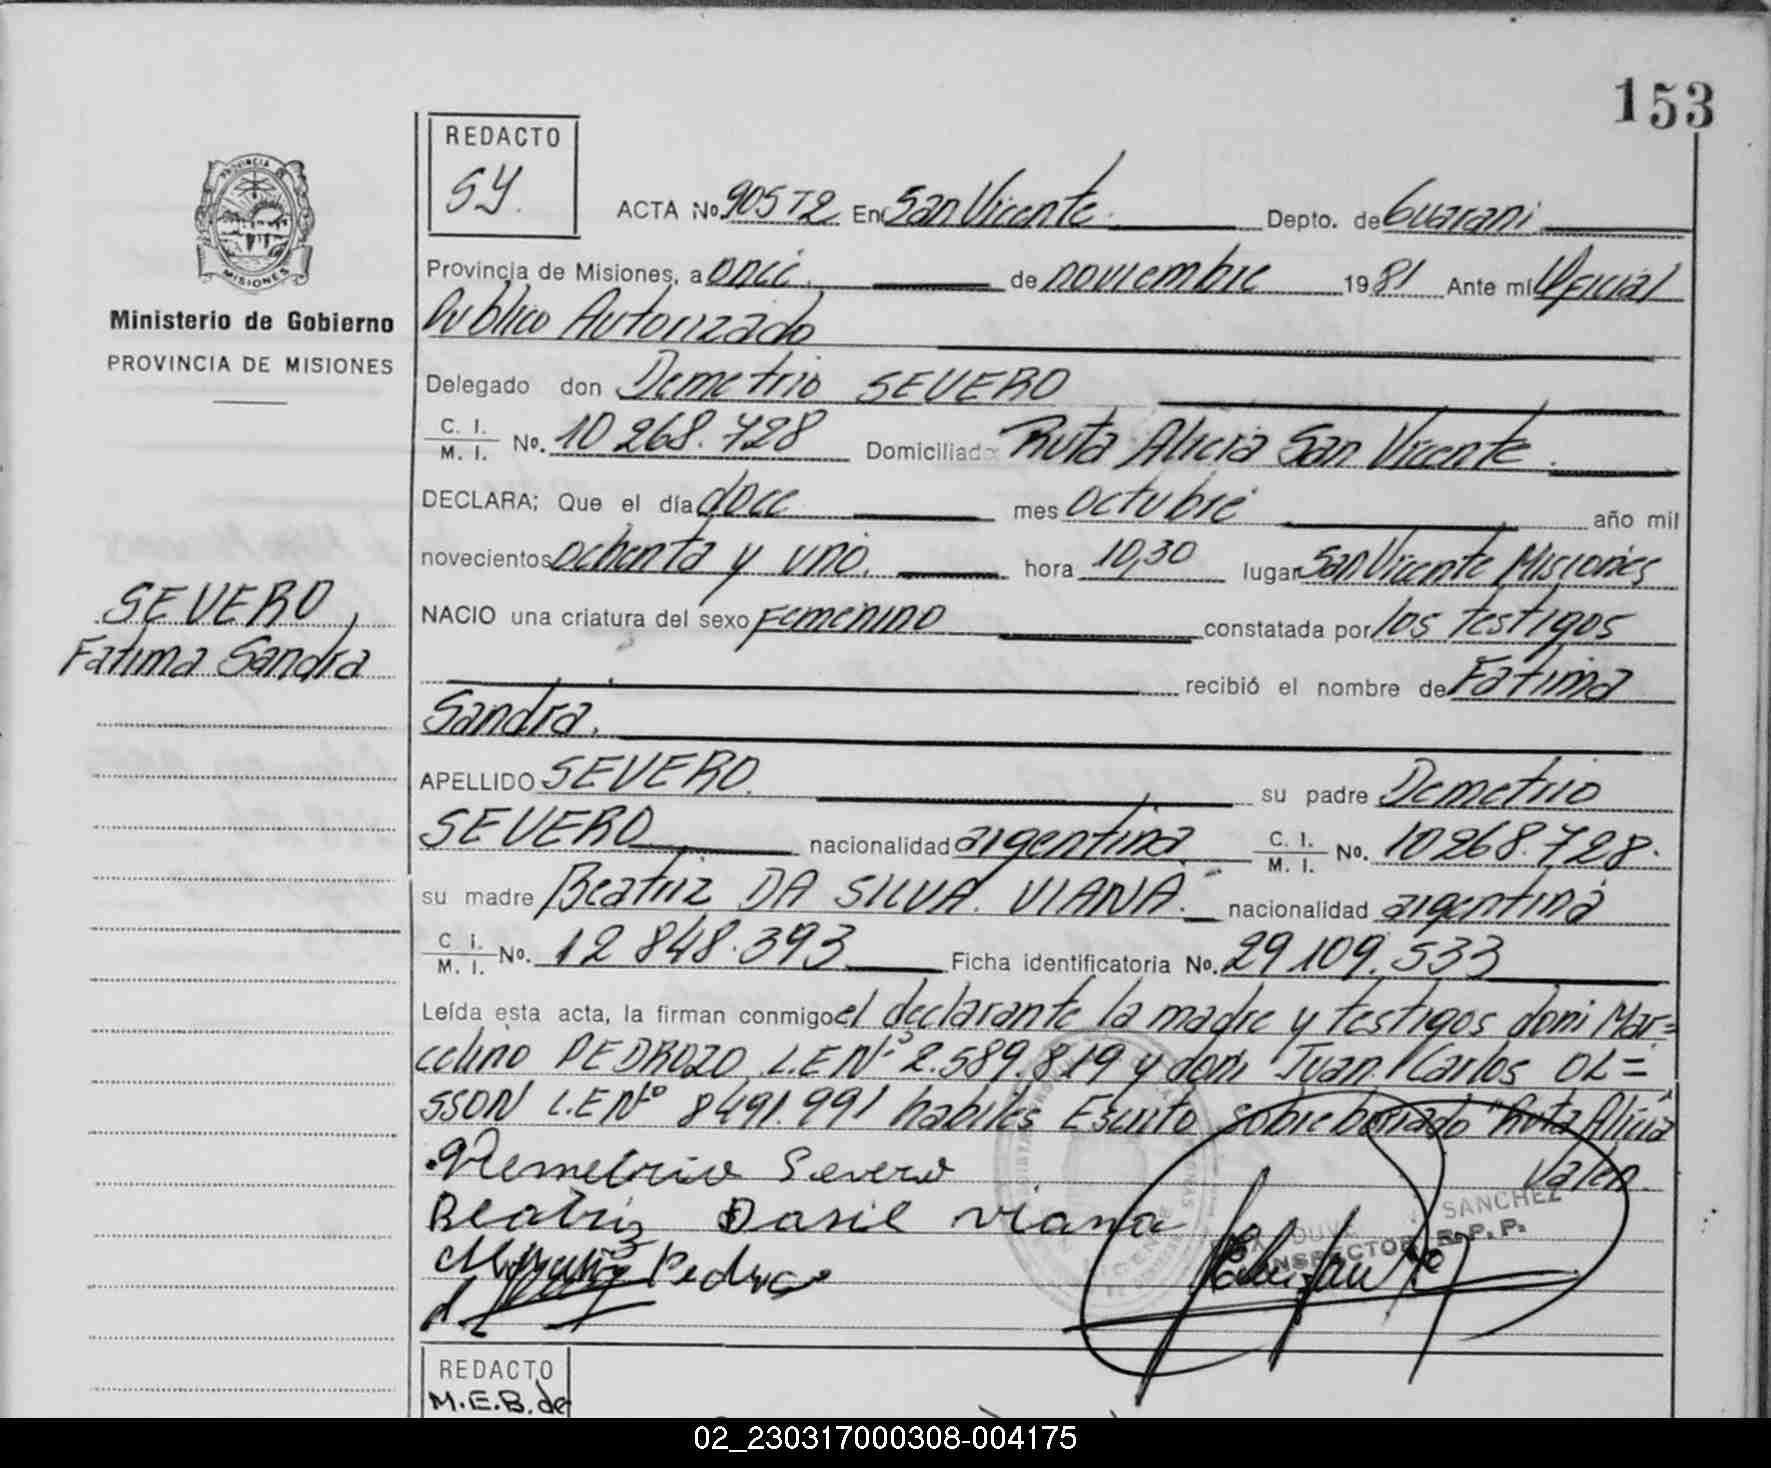 153
REDACTO
SY.
ACTA No 905 T2 En San Vicente. Depto. de Guarani
Provincia de Misiones, a once. de noviembre 1981 Ante mi Oficial
Publico Autorizado
Ministerio de Gobierno
PROVINCIA DE MISIONES
Delegado don Demetrio SEVERO
C. I. / M. I. No. 10 268.728 Domiciliado Ruta Alicia San Vicente.
DECLARA; Que el día doce mes octubre año mil
novecientos ochenta y uno. hora 10,30 lugar San Vicente Misiones
NACIO una criatura del sexo Femenino constatada por los testigos
recibió el nombre de Fatima
Sandra.
SEVERO,
Fatima Sandra
APELLIDO SEVERO. su padre Demetrio
SEVERO nacionalidad argentina C. I. / M. I. No. 10268.728.
su madre Beatriz DA SILVA. VIANA. nacionalidad argentina
C. I. / M. I. No. 12 848.393 Ficha identificatoria No. 29.109.533
Leída esta acta, la firman conmigo el declarante la madre y testigos don: Mar=
celino PEDROZO L.E Nº 2.589.819 y don: Juan Carlos OL=
SSON L.E Nº 8491.991 habiles Escrito sobre borrado "Ruta Alicia
Valen.
Demetrio Severo
Beatriz Dasil viana
SANCHEZ
INSPECTOR R.P.P.
REDACTO
M.E.B. de
02_230317000308-004175